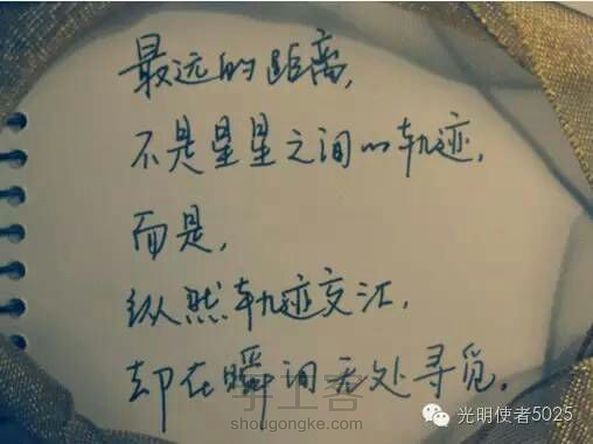 最远的距离,
不是星星之间的轨迹,
而是,
纵然轨迹交汇,
却在瞬间无处寻觅.
手工客
shougongke.com
光明使者5025